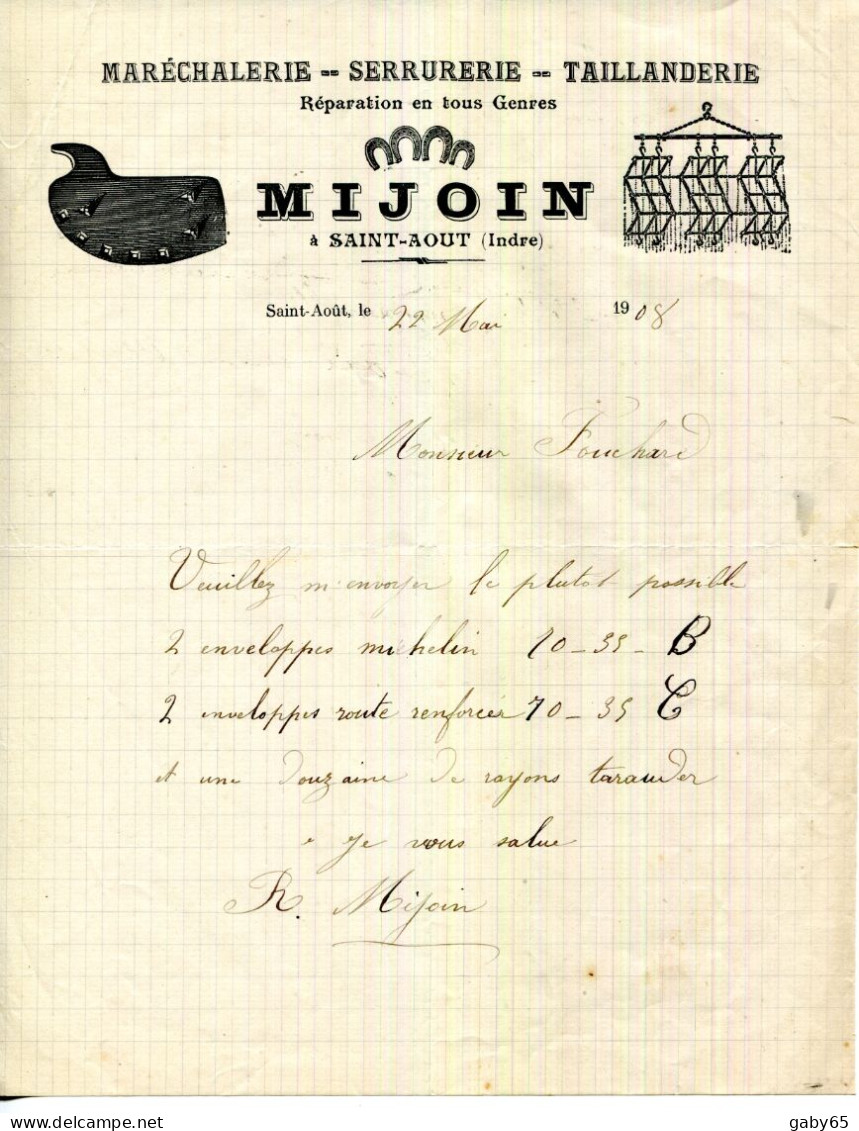 MARÉCHALERIE -- SERRURERIE -- TAILLANDERIE
Réparation en tous Genres
MIJOIN
à SAINT-AOUT (Indre)
Saint-Août, le 22 Mai 1908
Monsieur Fouchard
Veuillez m'envoyer le plutot possible
2 enveloppes michelin 70 - 35 - B
2 enveloppes route renforcée 70 - 35 C
et une douzaine de rayons tarauder
je vous salue
R. Mijoin
gaby65